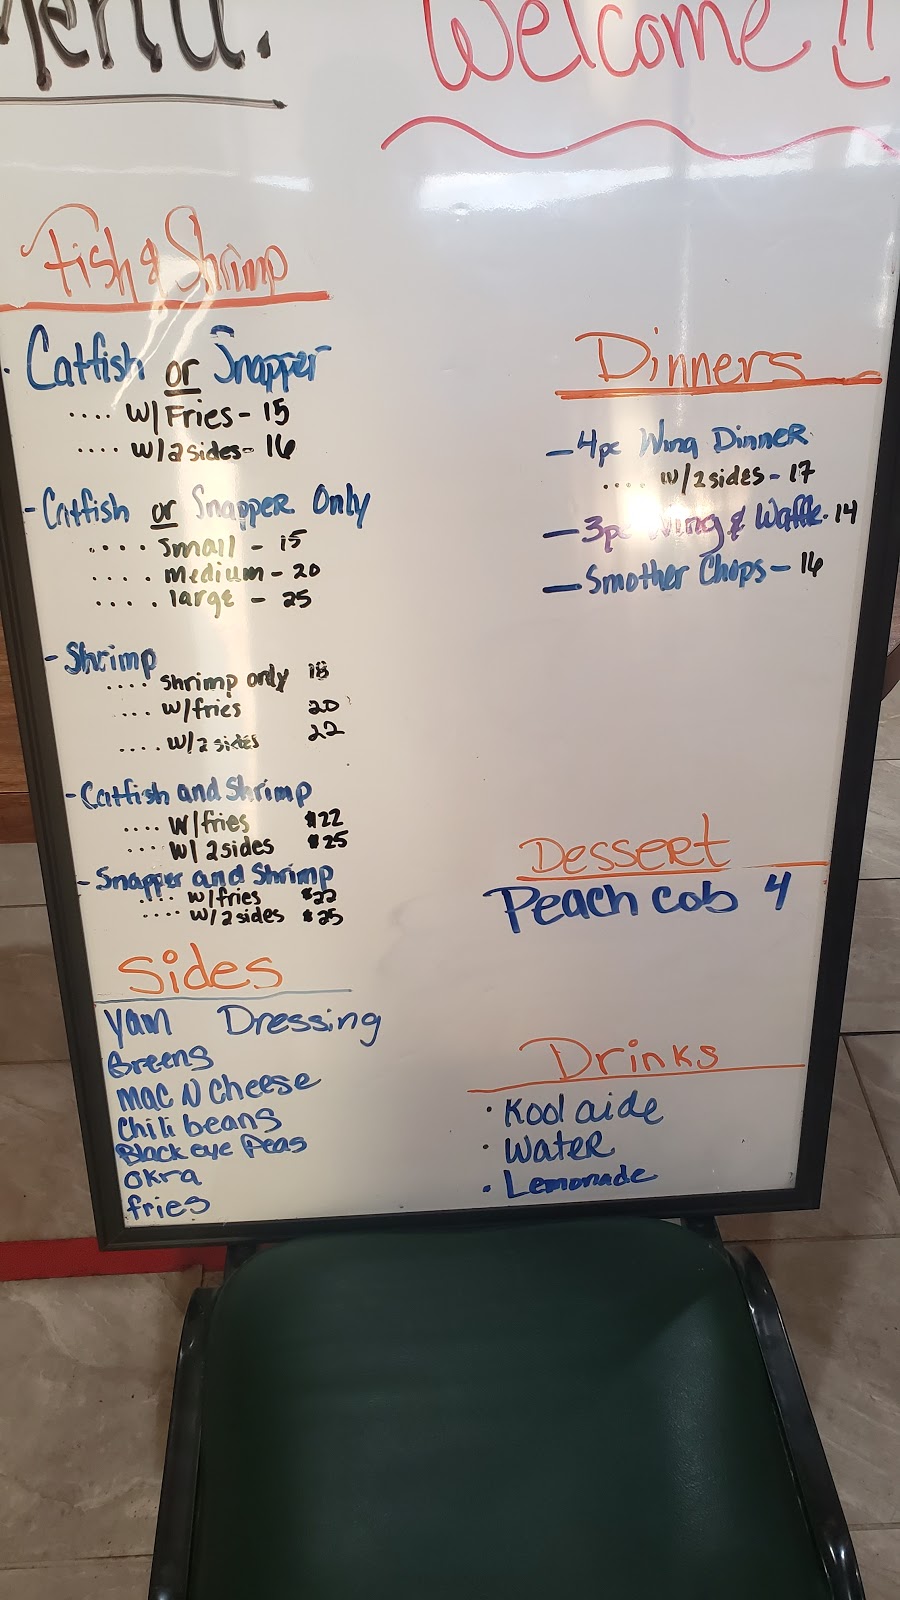 Menu.
Welcome!!
Fish & Shrimp
. Catfish or Snapper
.... w/Fries - 15
.... w/2sides - 16
- Catfish or Snapper Only
.... Small - 15
.... medium - 20
.... large - 25
- Shrimp
.... shrimp only 18
... w/fries 20
.... w/2 sides 22
- Catfish and Shrimp
.... w/fries $22
.... w/ 2sides $25
- Snapper and Shrimp
.... w/fries $22
.... w/2sides $25
Sides
Yam Dressing
Greens
Mac N Cheese
Chili beans
Black eye Peas
Okra
fries
Dinners
- 4pc Wing Dinner
.... w/2sides - 17
- 3pc Wing & Waffle. 14
- Smother Chops - 16
Dessert
Peach Cob 4
Drinks
· Kool aide
· Water
· Lemonade